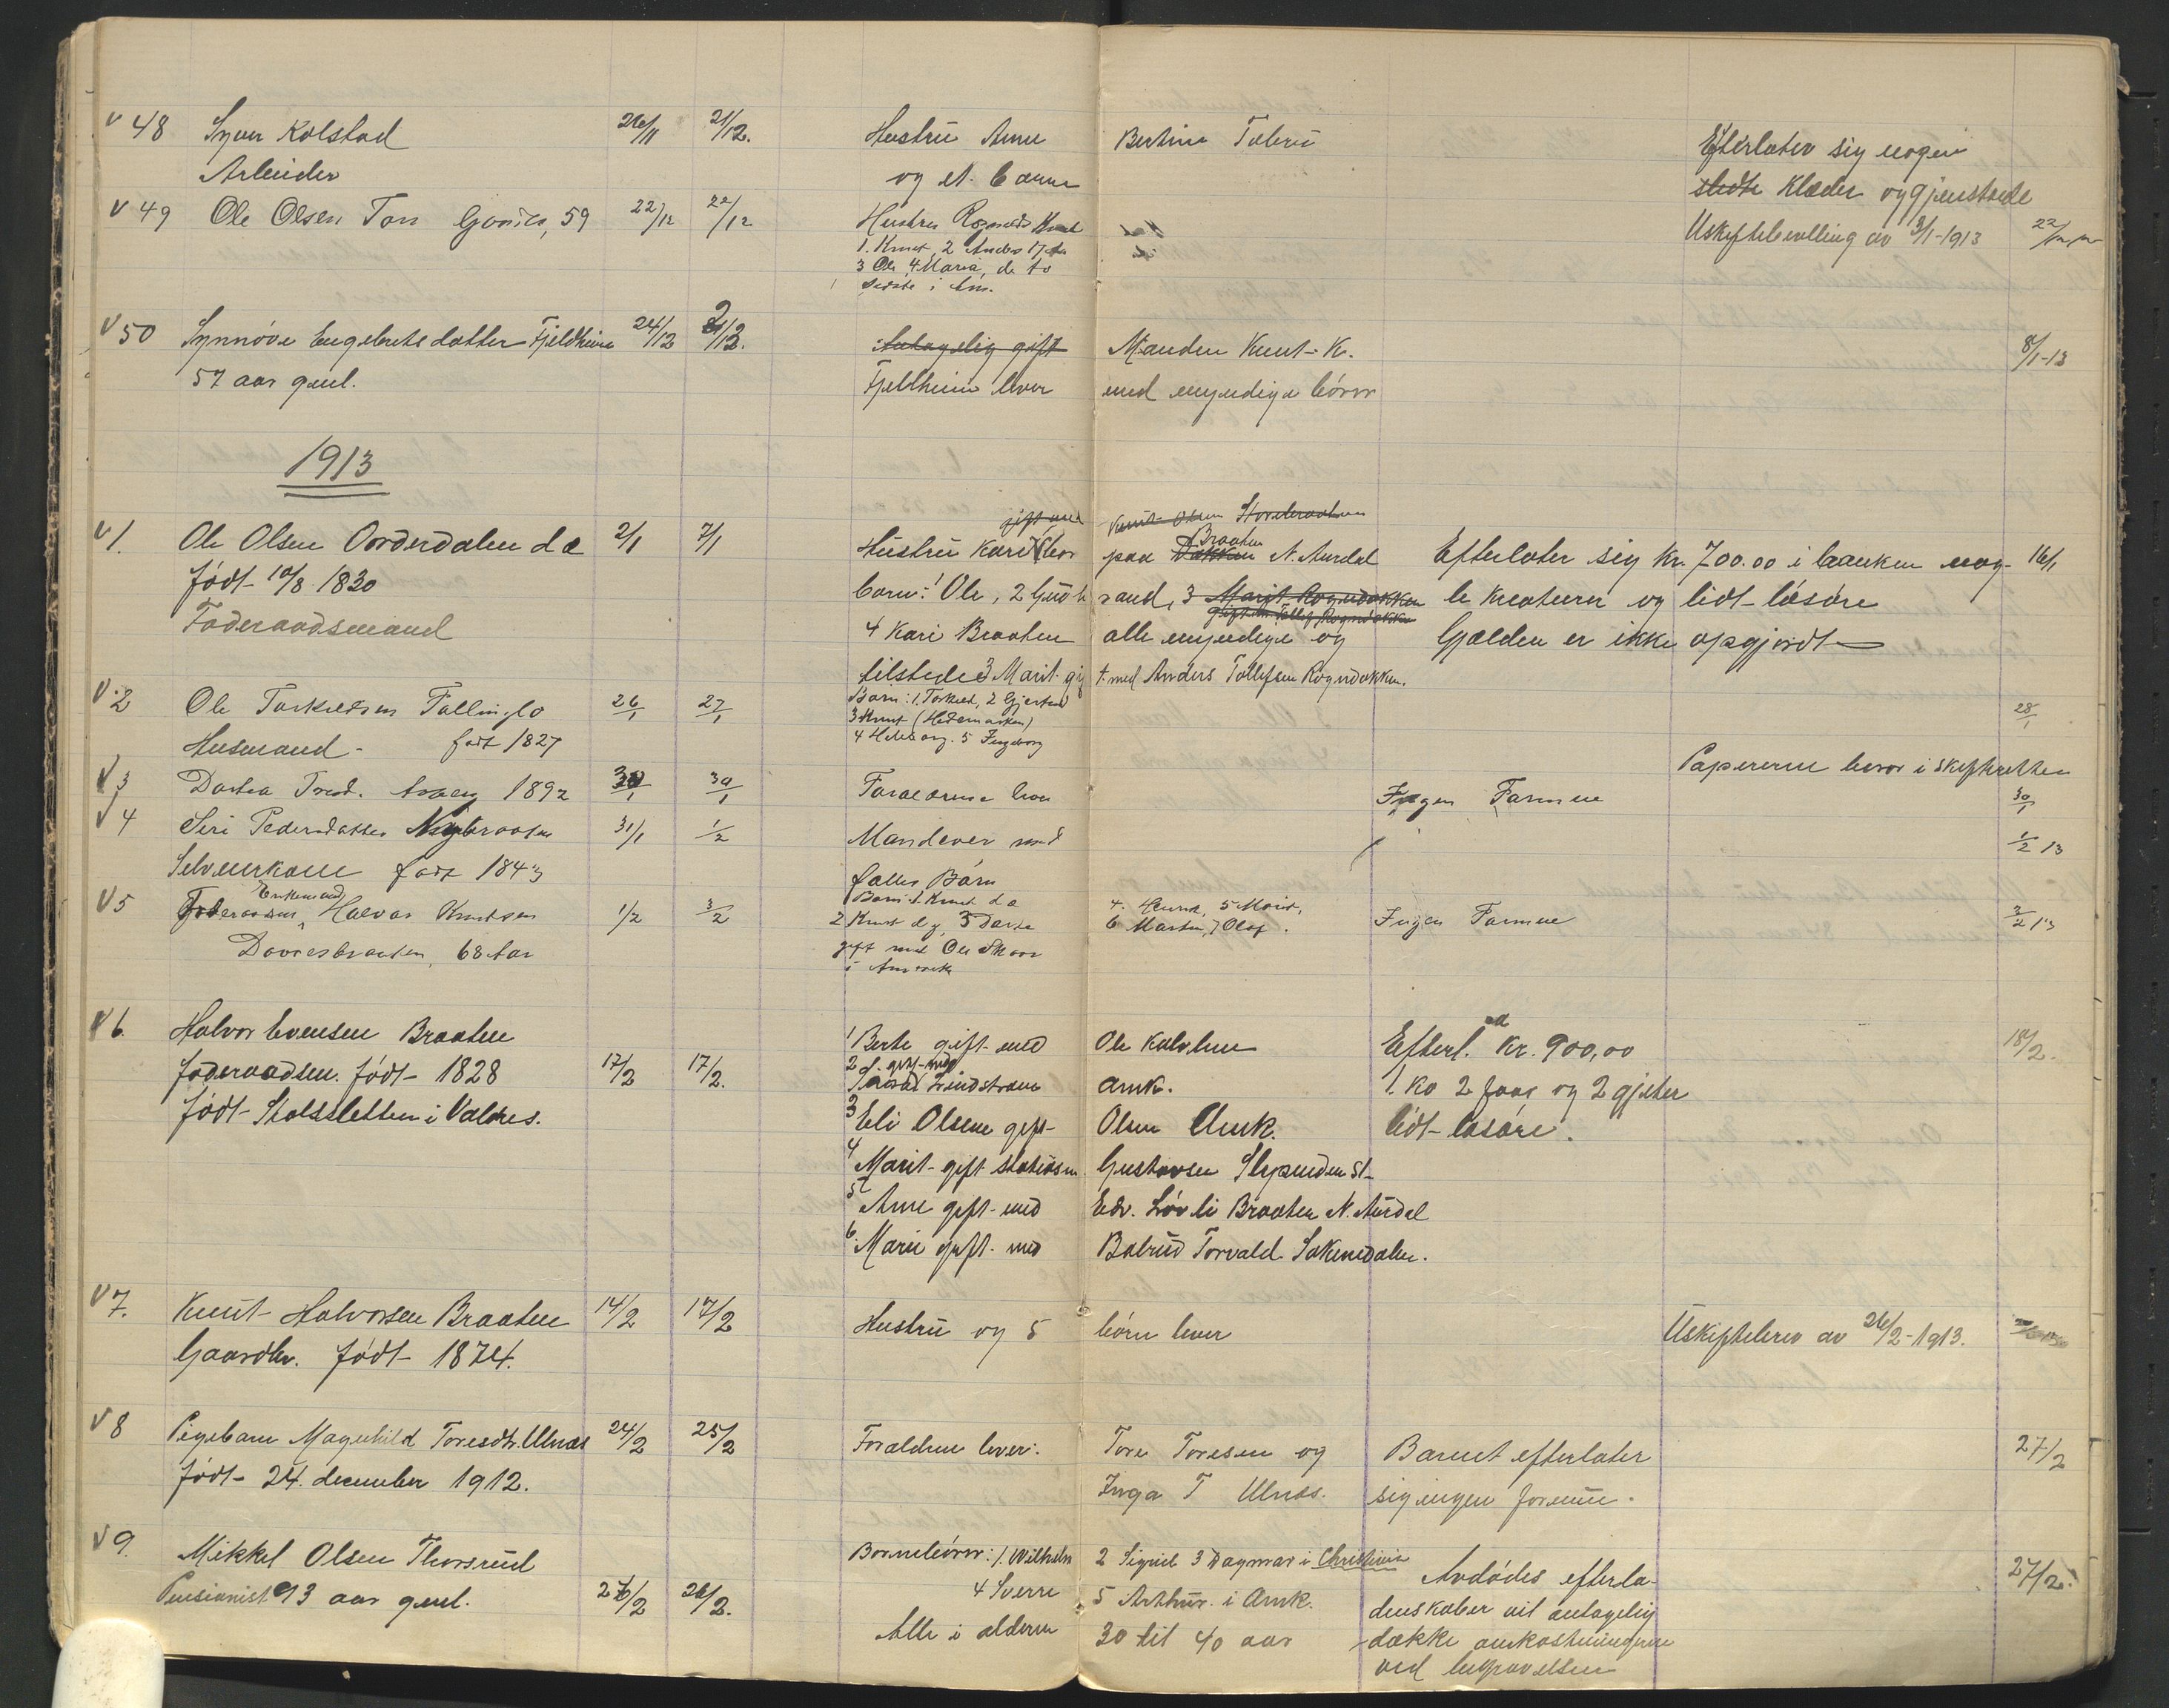 V 48 Syver Kolstad 26/11 21/12. Hustru Anne Bertine Toleru Efterlater sig nogen
Arbeider og et barn slidte Klæder og gjenstande
V 49 Ole Olsen Ton 59 22/12 22/12 Hustru Uskiftebevilling av 3/1-1913 22/12
1. Knut, 2 Anders 17
3 Ole, 4 Maria, de to
sidste i Am.
V 50 Synnøve Engebretsdatter Fjeldheim 24/12 2/12. Antagelig gift Manden Knut K. 8/1-13
57 aar gml. Fjeldheim lever med myndige børn
1913
V 1. Ole Olsen Oordsdalen d.æ 2/1 7/1 gift med Knut Olsen Storebraaten
Hustru Kari lever paa Bakken Braaten N. Aurdal Efterlater sig Kr. 700.00 i banken nog- 16/1
født 10/8 1830 barn: 1 Ole, 2 Gudb rand, 3 Marit Rognedokken le kreaturer og lidt løsøre
gift m. Tollef Rogndokken
Føderaadsmand 4 Kari Braaten alle myndige og Gjælden er ikke opgjordt
tilstede 3 Marit gif t. med Anders Tollefsen Rogndokken.
V. 2 Ole Torkildsen Fallinglo 26/1 27/1 Barn: 1. Torkild, 2 Gjertrud 28/1
3 Knut (Hedemarken)
Husmand - født 1827 4 5 Ingeborg
Papererne beror i skifteretten
V 3 Dortea 1892 30/1 30/1 Forældrene lever Ingen Formue 30/1
V 4 Siri Pedersdatter Nybraaten 31/1 1/2 Mand lever med 1/2 13
Selveierkone født 1843 fælles Børn
V 5 Føderaadsm. Enkemand Halvor Knutsen 1/2 3/2 Børn: 1. Knut d.æ 4. 5 Marit, Ingen Formue 3/2 13
2 Knut d.y, 3 Dorte 6 Martin, 7 Olaf.
Dovresbraaten, 68 Aar gift med Ole Skoar
i Amerik
V 6. Halvor Evensen Braaten 1 Berte gift med Ole Kalvhun Efterl. Kr. 900,00 18/2.
føderaadsm. født 1828 17/2 17/2. 2 gift med Lindstrøm amk. 1. ko 2 faar og 2 gjeter
født Stolsletten i Valdres. 3 Eli Olsen gift Olsen Amk. lidt løsøre.
4 Marit gift stationsm. Gustavsen Slependen St
5 Anne gift med Edv. Løvli Braaten N. Aurdal
6. Marie gift med Balrud Torvald Sakendalen.
V 7. Knut Halvorsen Braaten 14/2 17/2 Hustru og 5 børn lever Uskiftebrev av 26/2-1913.
Gaardbr. født 1874.
V 8 Pigebarn Magnhild Toresdtr. Ulnæs 24/2 25/2 Forældrene lever: Tore Toresen og Barnet efterlater 27/2
født 24. december 1912. Inga T Ulnæs. sig ingen formue.
V 9. Mikkel Olsen Thorsrud Barnebørn: 1. Wilhelm 2 Sigrid 3 Dagmar i Christiania Avdødes efterla- 27/2.
Pensionist 93 aar gml. 26/2 26/2. 4 Sverre 5 Arthur i Amk. denskaber vil antagelig
Alle i alderen 30 til 40 aar dække omkostningerne
ved begravelsen